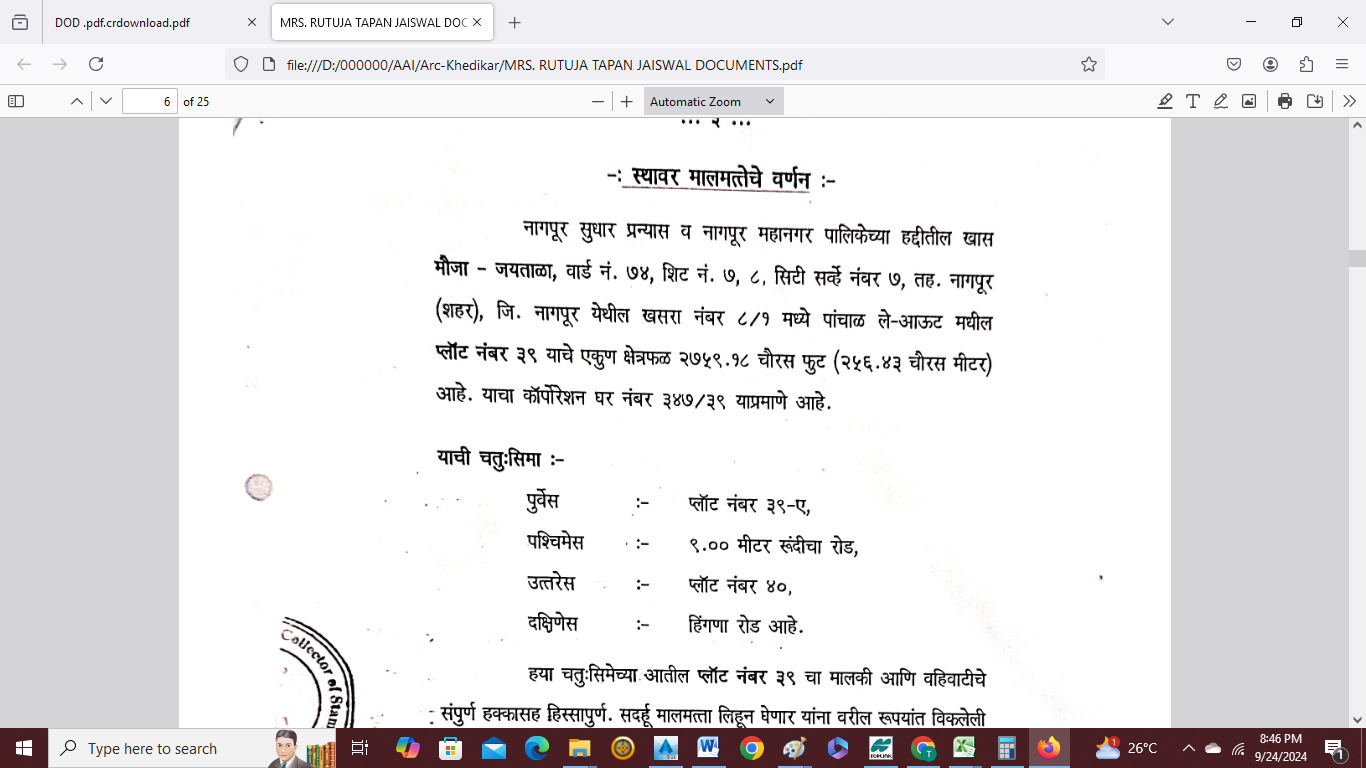 DOD .pdf.crdownload.pdf
MRS. RUTUJA TAPAN JAISWAL DOC
file:///D:/000000/AAI/Arc-Khedikar/MRS. RUTUJA TAPAN JAISWAL DOCUMENTS.pdf
6 of 25
Automatic Zoom
... २ ...
-: स्थावर मालमत्तेचे वर्णन :-
नागपूर सुधार प्रन्यास व नागपूर महानगर पालिकेच्या हद्दीतील खास
मौजा - जयताळा, वार्ड नं. ७४, शिट नं. ७, ८, सिटी सर्व्हे नंबर ७, तह. नागपूर
(शहर), जि. नागपूर येथील खसरा नंबर ८/१ मध्ये पांचाळ ले-आऊट मधील
प्लॉट नंबर ३९ याचे एकुण क्षेत्रफळ २७५९.१८ चौरस फुट (२५६.४३ चौरस मीटर)
आहे. याचा कॉर्पोरेशन घर नंबर ३४७/३९ याप्रमाणे आहे.
याची चतुःसिमा :-
पुर्वेस :- प्लॉट नंबर ३९-ए,
पश्चिमेस :- ९.०० मीटर रूंदीचा रोड,
उत्तरेस :- प्लॉट नंबर ४०,
दक्षिणेस :- हिंगणा रोड आहे.
हया चतुःसिमेच्या आतील प्लॉट नंबर ३९ चा मालकी आणि वहिवाटीचे
संपुर्ण हक्कासह हिस्सापुर्ण. सदर्हू मालमत्ता लिहून घेणार यांना वरील रूपयांत विकलेली
Collector of Stam
Type here to search
26°C
8:46 PM
9/24/2024
1